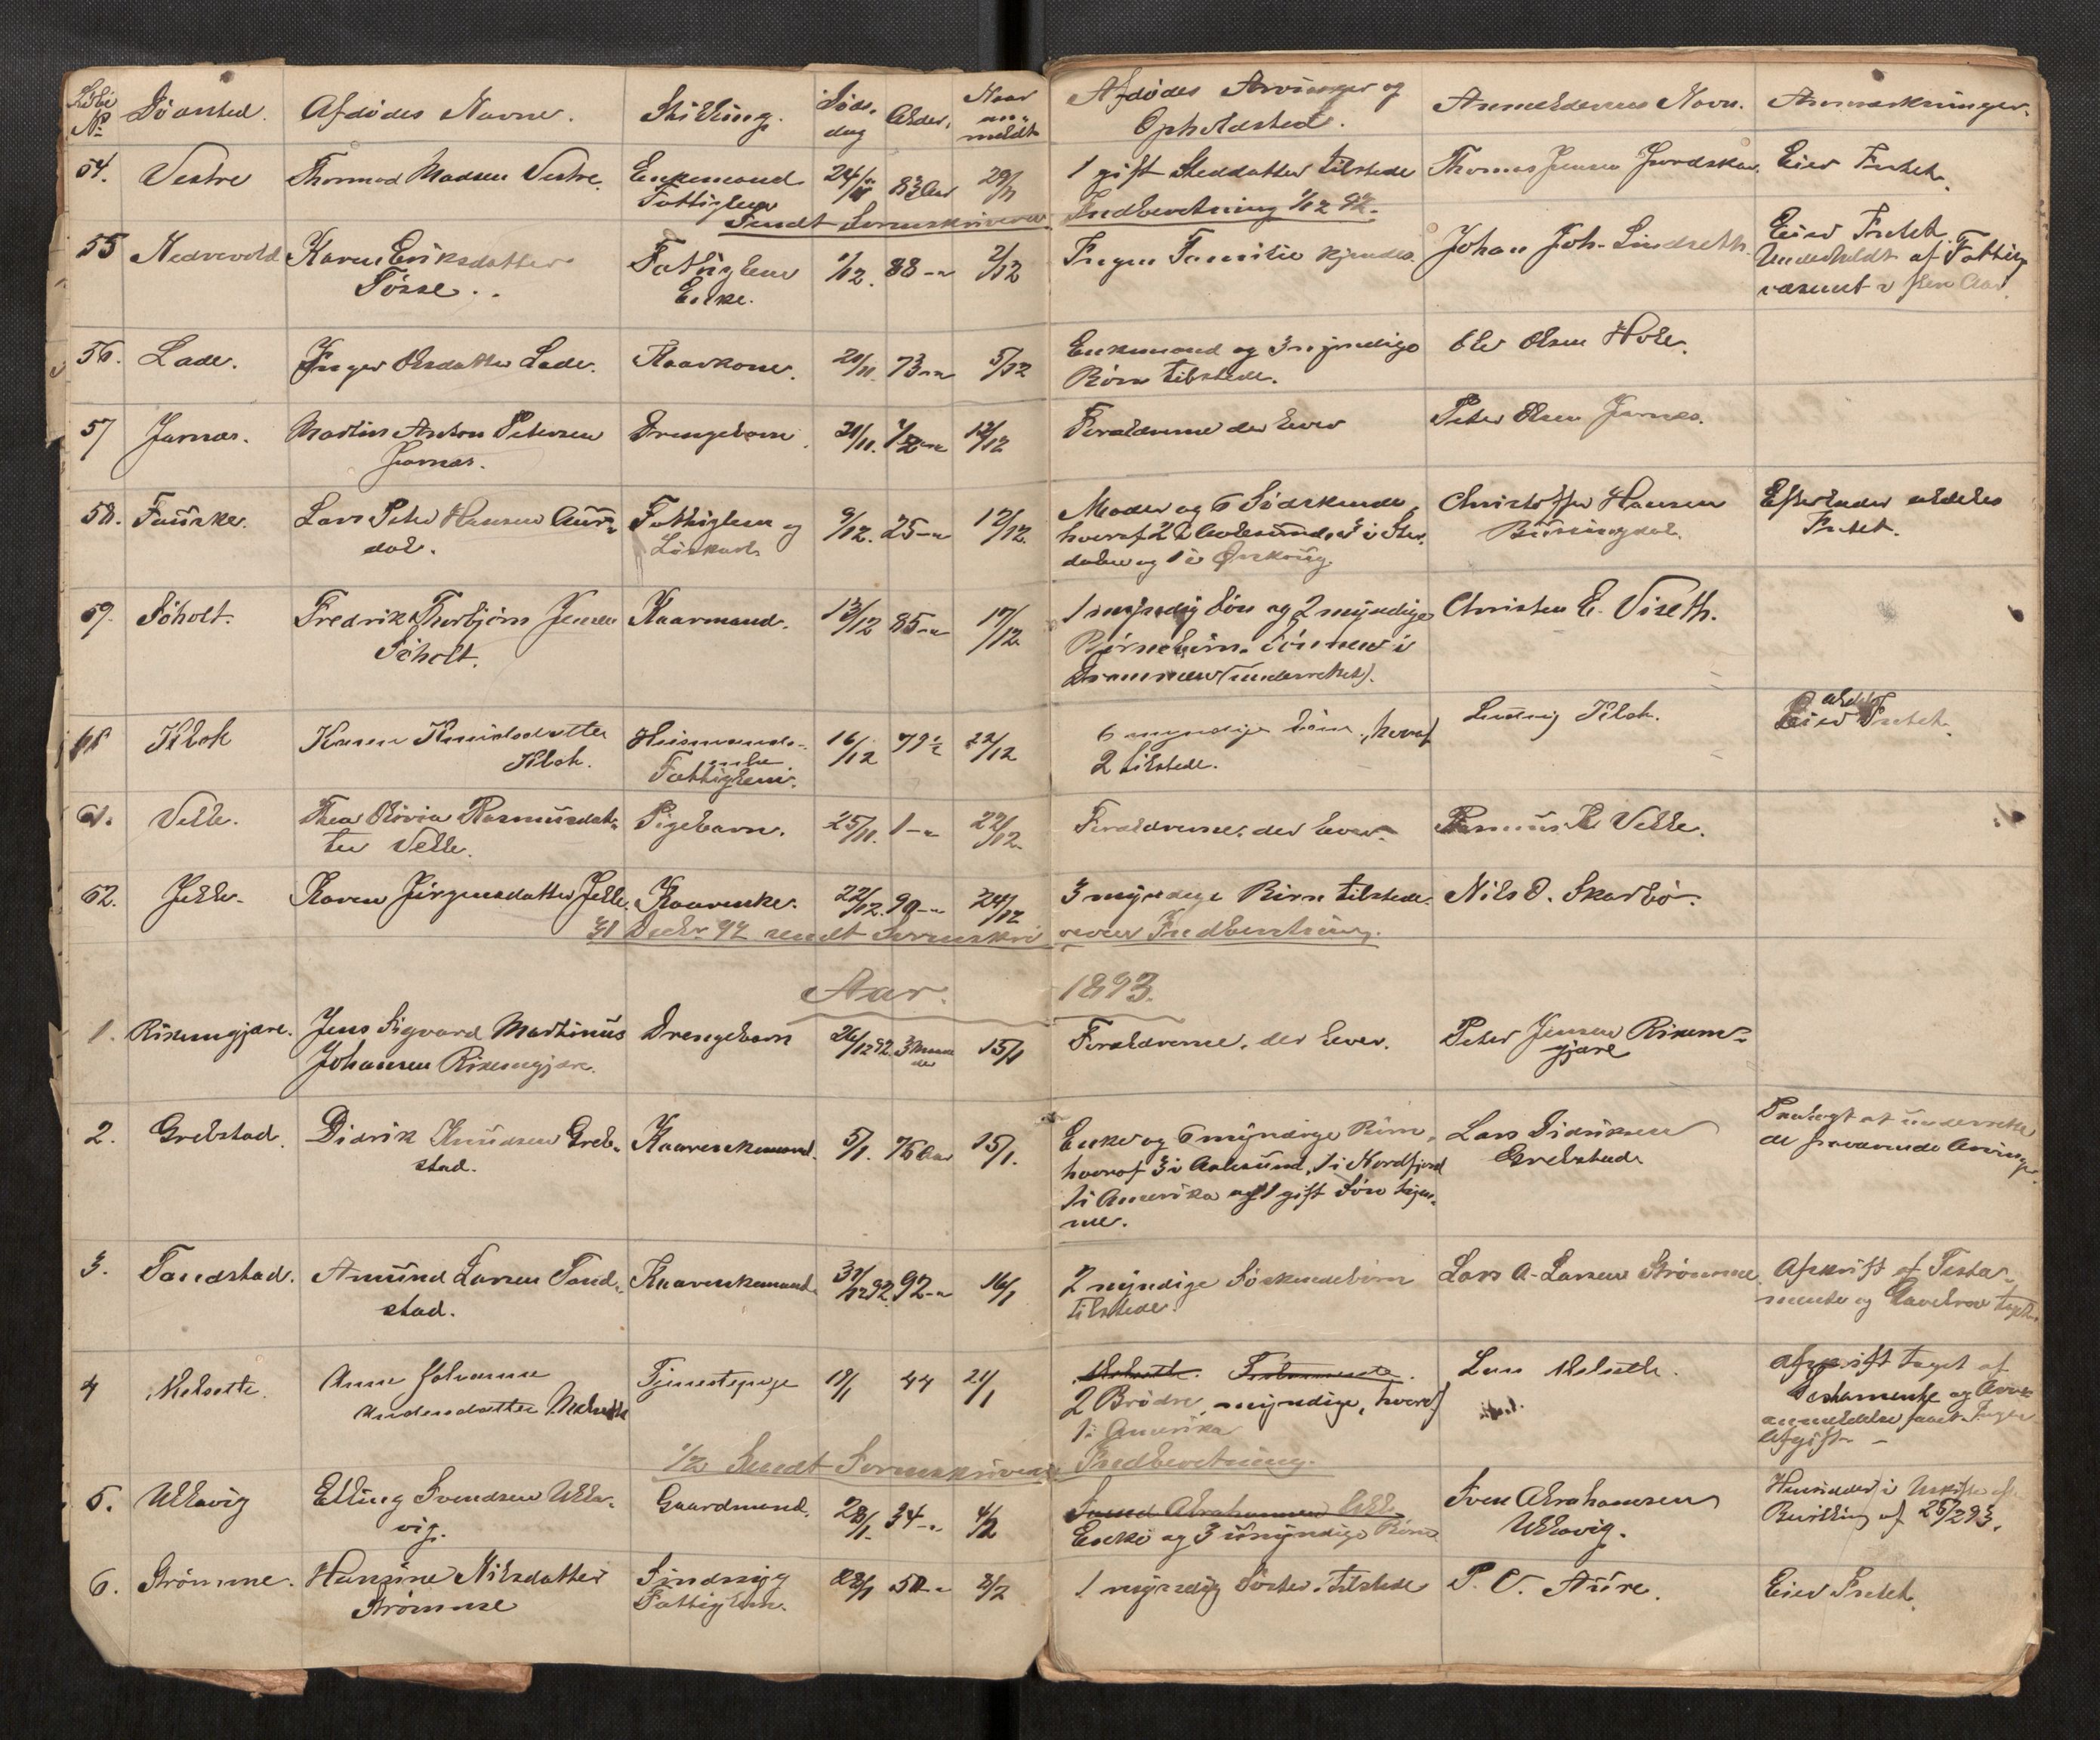 Löbe No Dödssted. Afdödes Navne. Stilling. Döds-dag Alder. Naar an-meldt Afdödes Arvinger og Opholdsted. Anmelderens Navn. Anmærkninger.
54. Vestre Thormod Madsen Vestre. Enkemand Fattiglem 24/11 83 Aar 29/11 1 gift Steddatter tilstede Thomas Jensen Eier Intet.
Sendt Sorenskriveren Indberetning 1/12 92.
55 Nedrevold Karen Eriksdatter
Tösse. Fattiglem Enke. 1/12. 88 -" 2/12 Ingen Familie kjendes. Johan Joh. Lindseth. Eier Intet.
Underholdt af Fattig-
væsenet i flere Aar.
56. Lade. Inger Olsdatter Lade. Kaarkone. 20/11. 73 -" 5/12 Enkemand og 3 myndige
Börn tilstede. Ole Olsen Hole.
57 Jarnæs. Martin Anton Petersen
Jarnæs. Drengebarn 21/11. 1/2 -" 12/12 Forældrene der lever Peter Olsen Jarnæs.
58. Fauske. Lars Peter Hansen Aur-
dal. Fattiglem og 9/12. 25 -" 12/12. Moder og 6 Södskende,
hvoraf 2 i Aalesund,
og 1 i Ørskoug Christoffer Hansen Efterlader aldeles
Intet.
59. Söholt. Fredrik Thorbjörn Jensen
Söholt. Kaarmand. 13/12 85 -" 17/12. 1 myndig Sön og 2 myndige
Börnebörn. Sönnen i
Drammen (underrettet). Christen E. Viseth.
60 Klok Karen Knudsdatter
Klok. Husmands-
enke
Fattiglem. 16/12 79 1/2 22/12 6 myndige Börn, hvoraf
2 tilstede. Ludvig Klok. Eier aldeles Intet.
61. Velle. Thea Olivia Rasmusdat-
ter Velle. Pigebarn. 25/11. 1 -" 22/12. Forældrene, der lever. Rasmus R Velle.
62. Jelle. Karen Jörgensdatter Jelle. Kaarenke. 22/12. 90 -" 24/12 3 myndige Börn tilstede. Nils O. Skarbö.
31 Decbr. 92 sendt Sorenskri veren Indberetning.
Aar. 1893.
1. Risemgjære. Jens Sigvard Martinus
Johansen Risemgjære. Drengebarn 26/12 92. 3 Maane
der 15/1 Forældrene, der lever. Peter Jensen Risem-
gjære
2. Grebstad. Didrik Knudsen Greb-
stad. Kaarenkemand. 5/1. 76 Aar 15/1. Enke og 6 myndige Börn,
hvoraf 3 i Aalesund, 1 i Nordfjord
1 i Amerika og 1 gift Sön hjem-
me. Lars Didriksen
Grebstad. Paalagt at underrette
de fraværende Arvinger.
3. Tandstad. Amund Larsen Tand-
stad. Kaarenkemand. 31/12 92. 92 -" 16/1 2 myndige Söskendebörn
tilstede. Lars A. Larsen Strömme. Afskrift af Testa-
mente og Gavebrev tagen.
4 Melsette. Anne Johanne
Andersdatter Melseth Tjenestepige 19/1 44 21/1 2 Brödre, myndige, hvoraf
1 i Amerika Lars Melseth. Afskrift taget af
Testamente og
anmeldelse
Afgift -
1/2 Sendt Sorenskriveren Indberetning.
5. Ullavig Elling Svendsen Ulla-
vig. Gaardmand. 28/1. 34 -" 4/2 Enke og 3 umyndige Börn Sven Abrahamsen
Ullavig. Hensidder i Uskiftet efter
Bevilling af 25/2 93.
6. Strömme. Hansine Nilsdatter
Strömme Sindssyg
Fattiglem. 28/1 50 -" 8/2 1 myndig Söster tilstede P. V. Aure. Eier Intet.